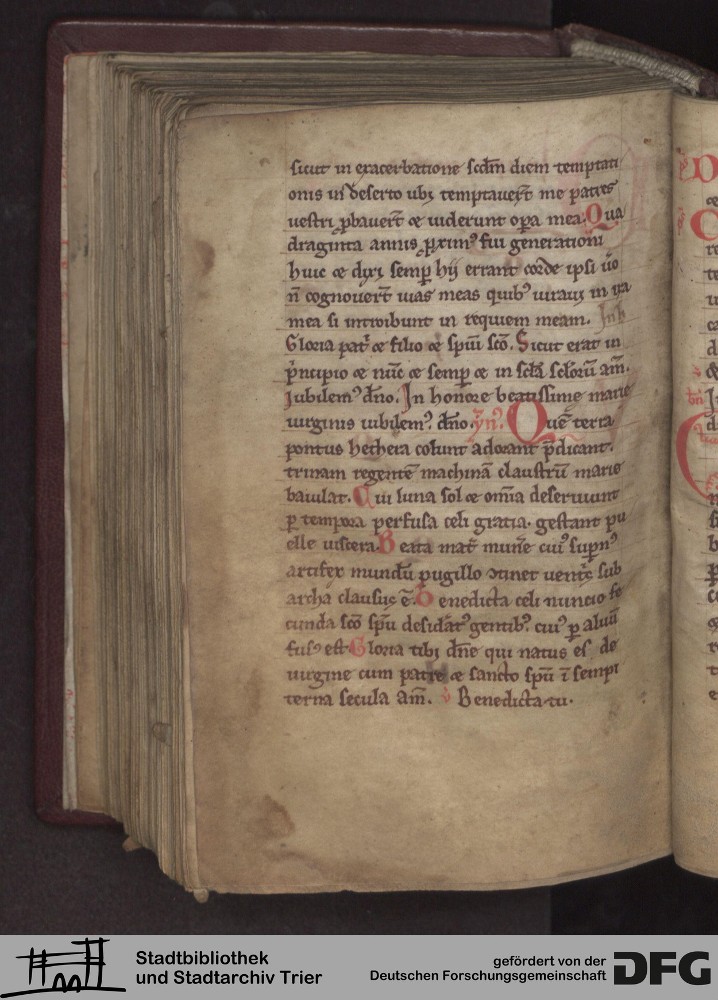 sicut in exacerbatione scdm diem temptati
onis in deserto ubi temptauert me patres
uestri pbauert & uiderunt opa mea. Qua
draginta annis pxim9 fui generationi
huic & dixi semp hij errant corde ipsi uo
n cognouert uias meas quib9 iuraui in ira
mea si introibunt in requiem meam.
Gloria pat & filio & spui sco. Sicut erat in
pncipio & nuc & semp & in scla sclorum am.
Jubilem9 dno. In honore beatissime marie
uirginis iubilem9 dno. yn9. Que terra
pontus hethera colunt adorant pdicant.
trinam regente machina claustru marie
baiulat. Cui luna sol & omia deseruiunt
p tempora perfusa celi gratia. gestant pu
elle uiscera. Beata mat mune cui9 supn9
artifex mundu pugillo ↄtinet uentis sub
archa clausus e. Benedicta celi nuncio fe
cunda sco spu desidat9 gentib9. cui9 p aluu
fus9 est. Gloria tibi dne qui natus es de
uirgine cum patre & sancto spu i sempi
terna secula am. Benedicta tu.
Stadtbibliothek
und Stadtarchiv Trier
gefördert von der
Deutschen Forschungsgemeinschaft
DFG